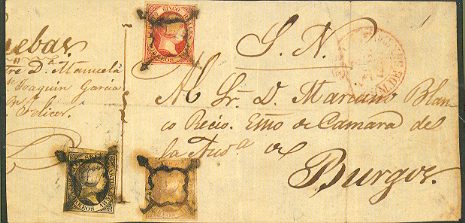 uebas
tre Dª Manuela
Joaquin Garcia
Pelicer
S. N.
Al Sr. D. Marcino Blan
co Recio. Emo de Camara de
la Audª de
Burgos.